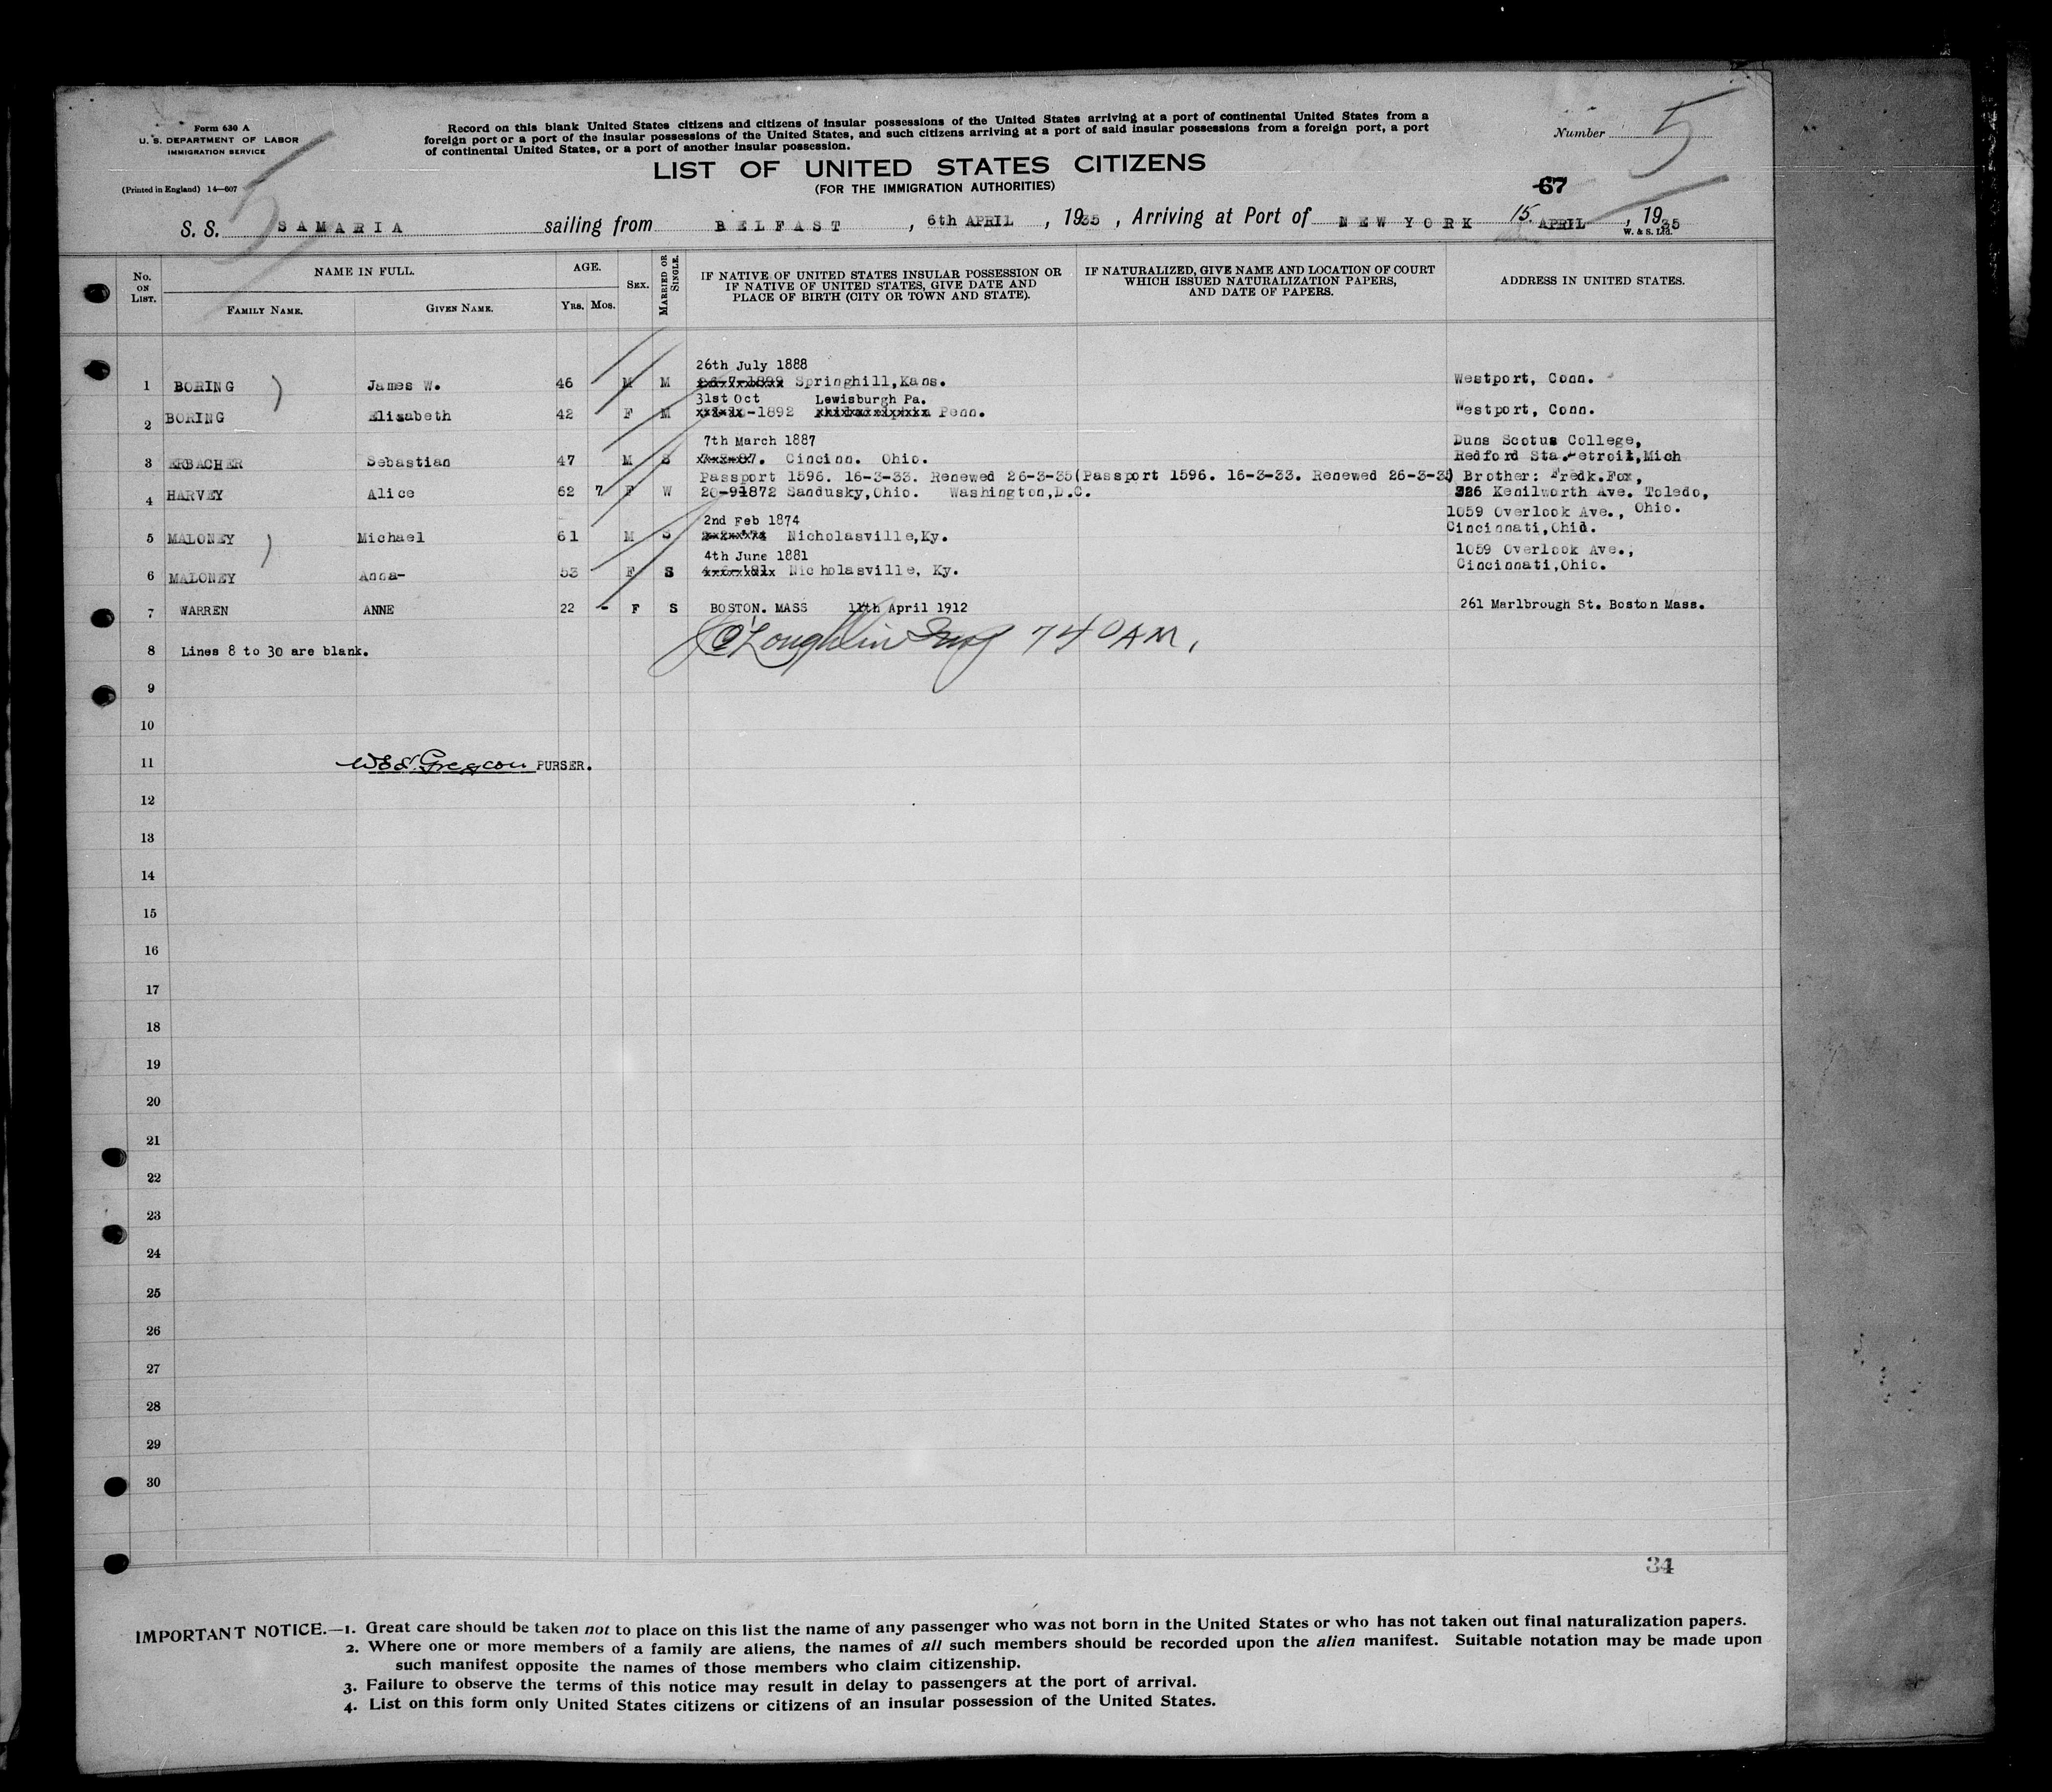 Form 630 A
U. S. DEPARTMENT OF LABOR
IMMIGRATION SERVICE
(Printed in England) 14—607
5
Record on this blank United States citizens and citizens of insular possessions of the United States arriving at a port of continental United States from a
foreign port or a port of the insular possessions of the United States, and such citizens arriving at a port of said insular possessions from a foreign port, a port
of continental United States, or a port of another insular possession.
LIST OF UNITED STATES CITIZENS
(FOR THE IMMIGRATION AUTHORITIES)
Number 5
67
S. S. SAMARIA sailing from BELFAST, 6th APRIL, 1935, Arriving at Port of NEW YORK 15. APRIL, 1935
W. & S. Ltd.
No. ON LIST.
NAME IN FULL.
FAMILY NAME.
GIVEN NAME.
AGE.
YRS. MOS.
SEX.
MARRIED OR SINGLE.
IF NATIVE OF UNITED STATES INSULAR POSSESSION OR
IF NATIVE OF UNITED STATES, GIVE DATE AND
PLACE OF BIRTH (CITY OR TOWN AND STATE).
IF NATURALIZED, GIVE NAME AND LOCATION OF COURT
WHICH ISSUED NATURALIZATION PAPERS,
AND DATE OF PAPERS.
ADDRESS IN UNITED STATES.
26th July 1888
1 BORING ) James W. 46 M M Springhill,Kans. Westport, Conn.
31st Oct Lewisburgh Pa.
2 BORING Elisabeth 42 F M -1892 Penn. Westport, Conn.
7th March 1887 Duns Scotus College,
3 ERBACHER Sebastian 47 M S Cincinn. Ohio. Redford Sta. Detroit,Mich
Passport 1596. 16-3-33. Renewed 26-3-35(Passport 1596. 16-3-33. Renewed 26-3-35) Brother: Fredk.Fox,
4 HARVEY Alice 62 7 F W 20-91872 Sandusky,Ohio. Washington,D.C. 326 Kenilworth Ave. Toledo,
Ohio.
2nd Feb 1874 1059 Overlook Ave.,
5 MALONEY ) Michael 61 M S Nicholasville,Ky. Cincinnati,Ohio.
4th June 1881 1059 Overlook Ave.,
6 MALONEY Anna- 53 F S Nicholasville, Ky. Cincinnati,Ohio.
7 WARREN ANNE 22 - F S BOSTON. MASS 11th April 1912 261 Marlbrough St. Boston Mass.
8 Lines 8 to 30 are blank. O'Loughlin 740 AM.
9
10
11 PURSER.
12
13
14
15
16
17
18
19
20
21
22
23
24
25
26
27
28
29
30
34
IMPORTANT NOTICE.—1. Great care should be taken not to place on this list the name of any passenger who was not born in the United States or who has not taken out final naturalization papers.
2. Where one or more members of a family are aliens, the names of all such members should be recorded upon the alien manifest. Suitable notation may be made upon
such manifest opposite the names of those members who claim citizenship.
3. Failure to observe the terms of this notice may result in delay to passengers at the port of arrival.
4. List on this form only United States citizens or citizens of an insular possession of the United States.